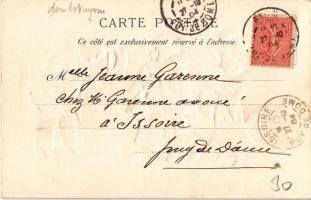 dombornyomat
CARTE POSTALE
Ce côté est exclusivement réservé à l'adresse.
Melle Jeanne Garenne
chez Mr Garenne avoué
à Issoire
Puy de Dôme
ISSOIRE
PUY-DE-DOME
30